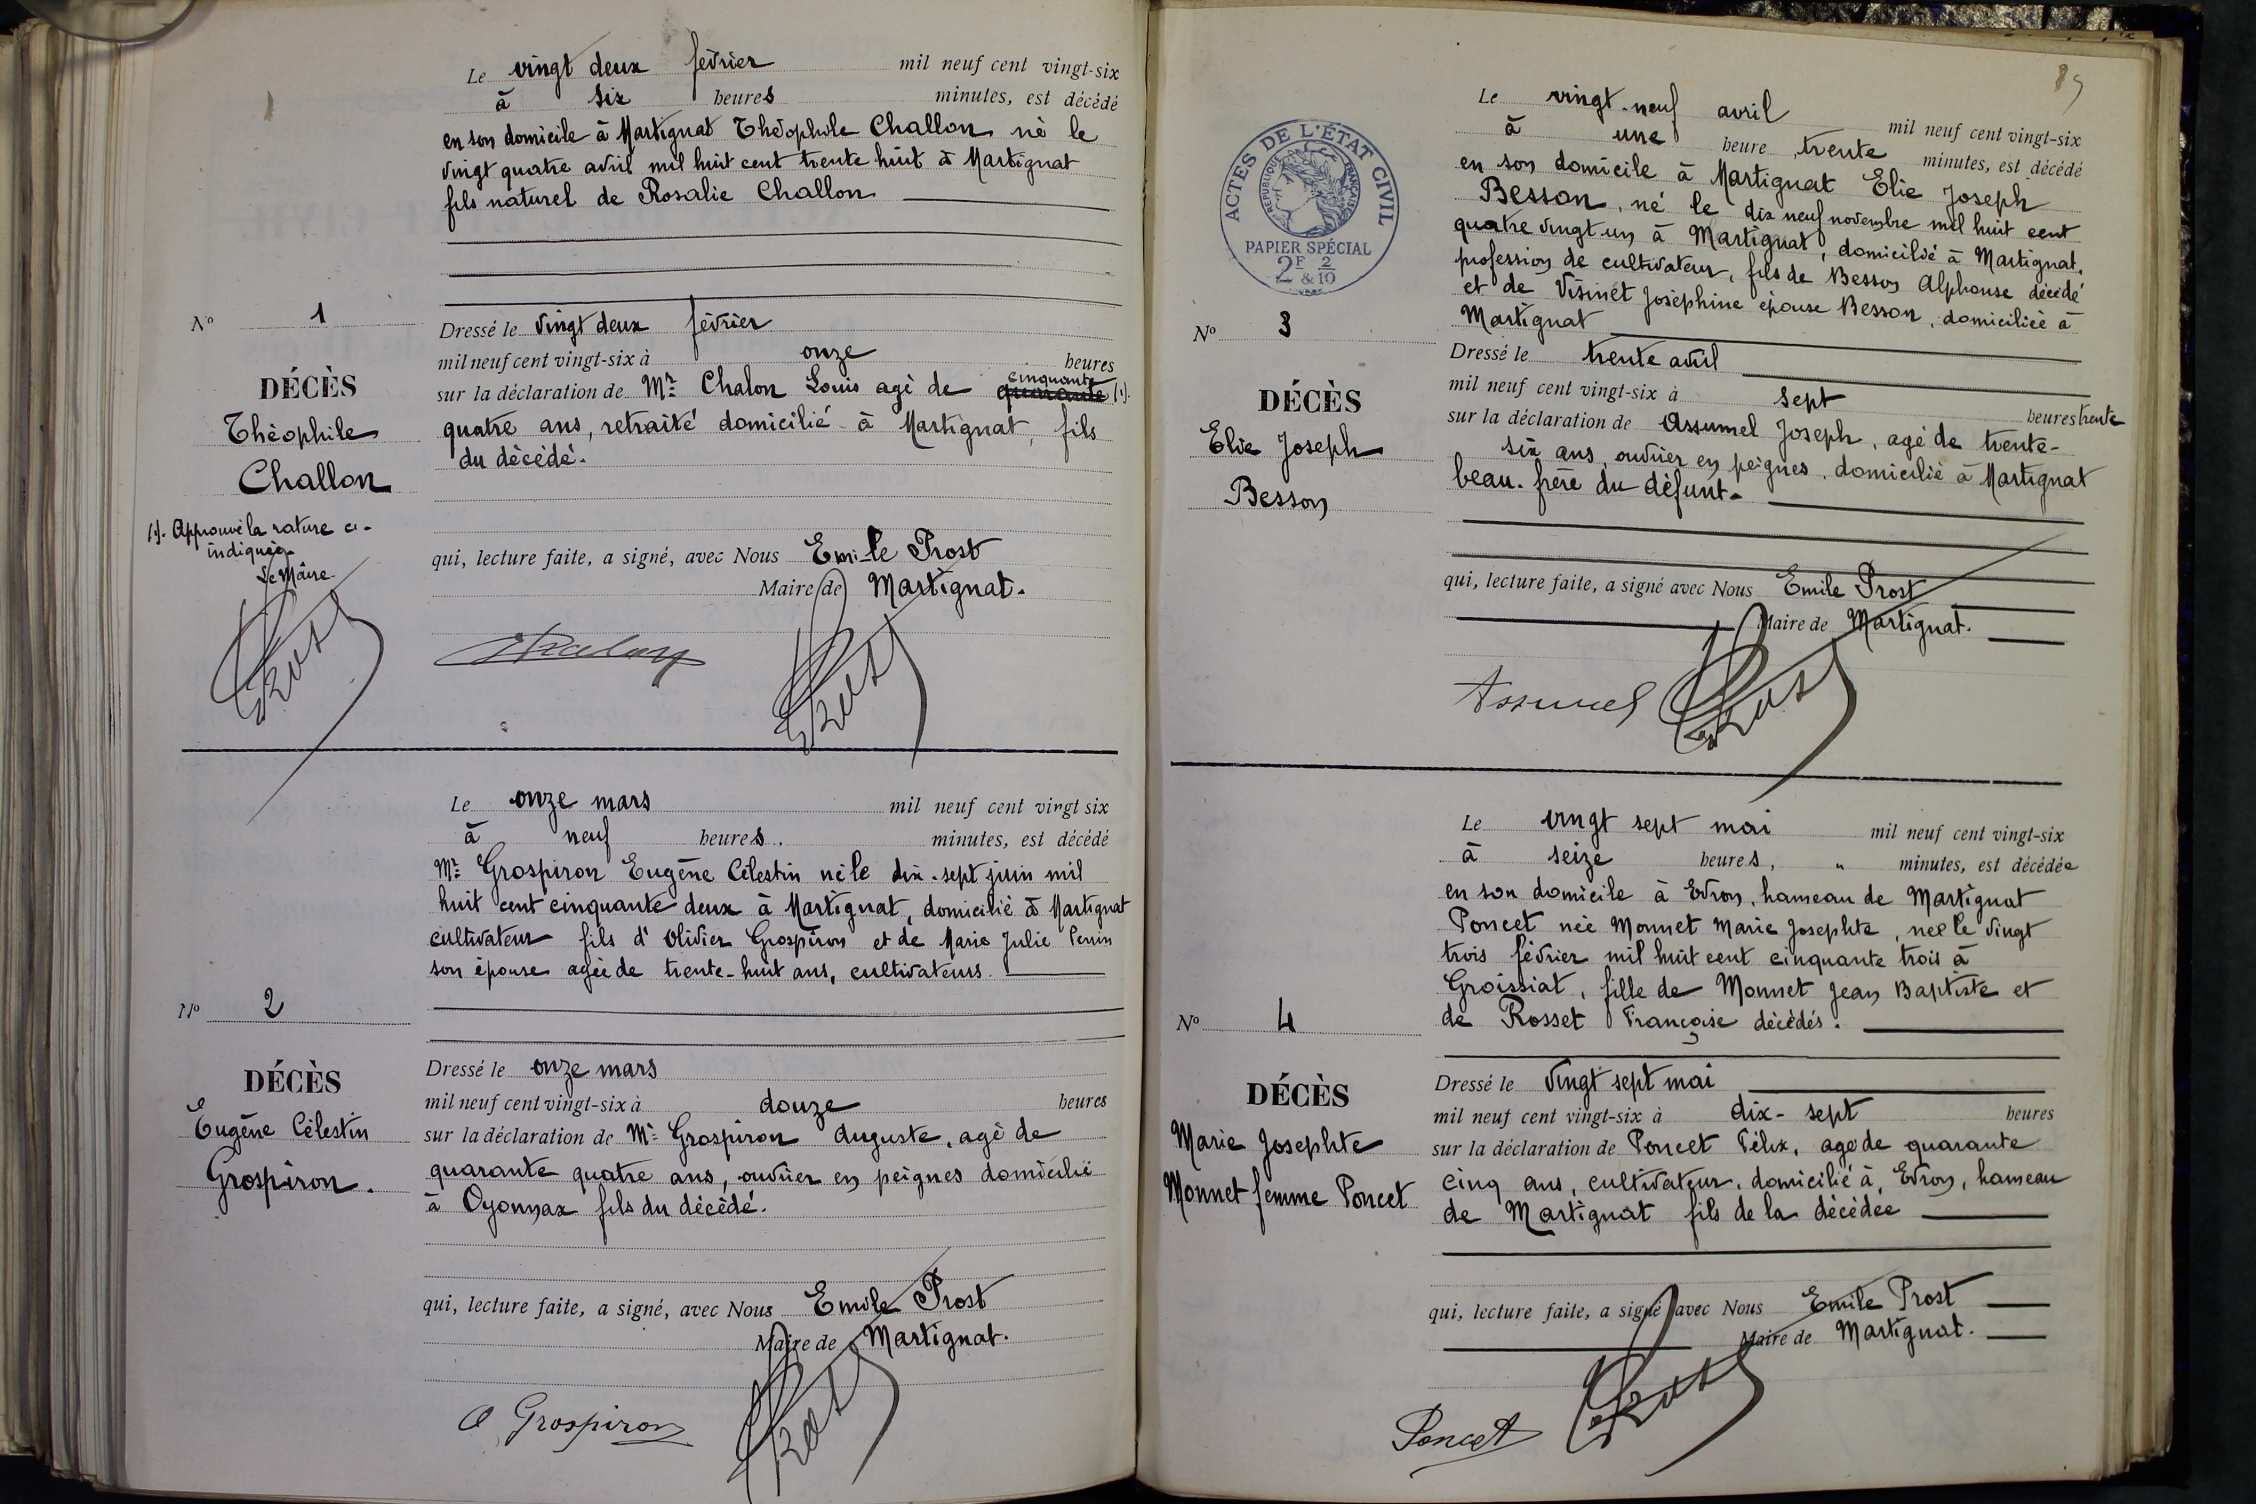 Le vingt deux février mil neuf cent vingt-six
à six heures minutes, est décédé
en son domicile à Martignat Théophile Challon né le
vingt quatre avril mil huit cent trente huit à Martignat
fils naturel de Rosalie Challon
N° 1
DÉCÈS
Théophile
Challon
(1). Approuvé la rature ci-
indiquée
Le Maire
Prost
Dressé le vingt deux février
mil neuf cent vingt-six à onze heures
cinquante
sur la déclaration de Mr Chalon Louis agé de quarante (1).
quatre ans, retraité domicilié à Martignat, fils
du décédé.
qui, lecture faite, a signé, avec Nous Emile Prost
Maire de Martignat.
Chalon Prost
Le onze mars mil neuf cent vingt six
à neuf heures. minutes, est décédé
Mr Grospiron Eugène Célestin né le dix-sept juin mil
huit cent cinquante deux à Martignat, domicilié à Martignat
cultivateur fils d'Olivier Grospiron et de Marie Julie Perrin
son épouse agée de trente-huit ans, cultivateurs.
N° 2
DÉCÈS
Eugène Célestin
Grospiron.
Dressé le onze mars
mil neuf cent vingt-six à douze heures
sur la déclaration de Mr Grospiron Auguste, agé de
quarante quatre ans, ouvrier en peignes domicilié
à Oyonnax fils du décédé.
qui, lecture faite, a signé, avec Nous Emile Prost
Maire de Martignat.
A Grospiron Prost
89
ACTES DE L'ÉTAT CIVIL
REPUBLIQUE FRANÇAISE
PAPIER SPÉCIAL
2F & 2/10
Le vingt-neuf avril mil neuf cent vingt-six
à une heure trente minutes, est décédé
en son domicile à Martignat Elie Joseph
Besson, né le dix neuf novembre mil huit cent
quatre vingt un à Martignat, domicilié à Martignat,
profession de cultivateur, fils de Besson Alphonse décédé
et de Visinet Joséphine épouse Besson, domiciliée à
Martignat
N° 3
DÉCÈS
Elie Joseph
Besson
Dressé le trente avril
mil neuf cent vingt-six à sept heures trente
sur la déclaration de Assumel Joseph, agé de trente-
six ans, ouvrier en peignes, domicilié à Martignat
beau-frère du défunt.
qui, lecture faite, a signé avec Nous Emile Prost
Maire de Martignat.
Assumel Prost
Le vingt sept mai mil neuf cent vingt-six
à seize heures, " minutes, est décédée
en son domicile à Evron, hameau de Martignat
Poncet née Monnet Marie Josephte, née le vingt
trois février mil huit cent cinquante trois à
Groissiat, fille de Monnet Jean Baptiste et
de Rosset Françoise décédés.
N° 4
DÉCÈS
Marie Josephte
Monnet femme Poncet
Dressé le vingt sept mai
mil neuf cent vingt-six à dix-sept heures
sur la déclaration de Poncet Félix, agé de quarante
cinq ans, cultivateur, domicilié à, Evron, hameau
de Martignat fils de la décédée
qui, lecture faite, a signé avec Nous Emile Prost
Maire de Martignat.
Poncet Prost